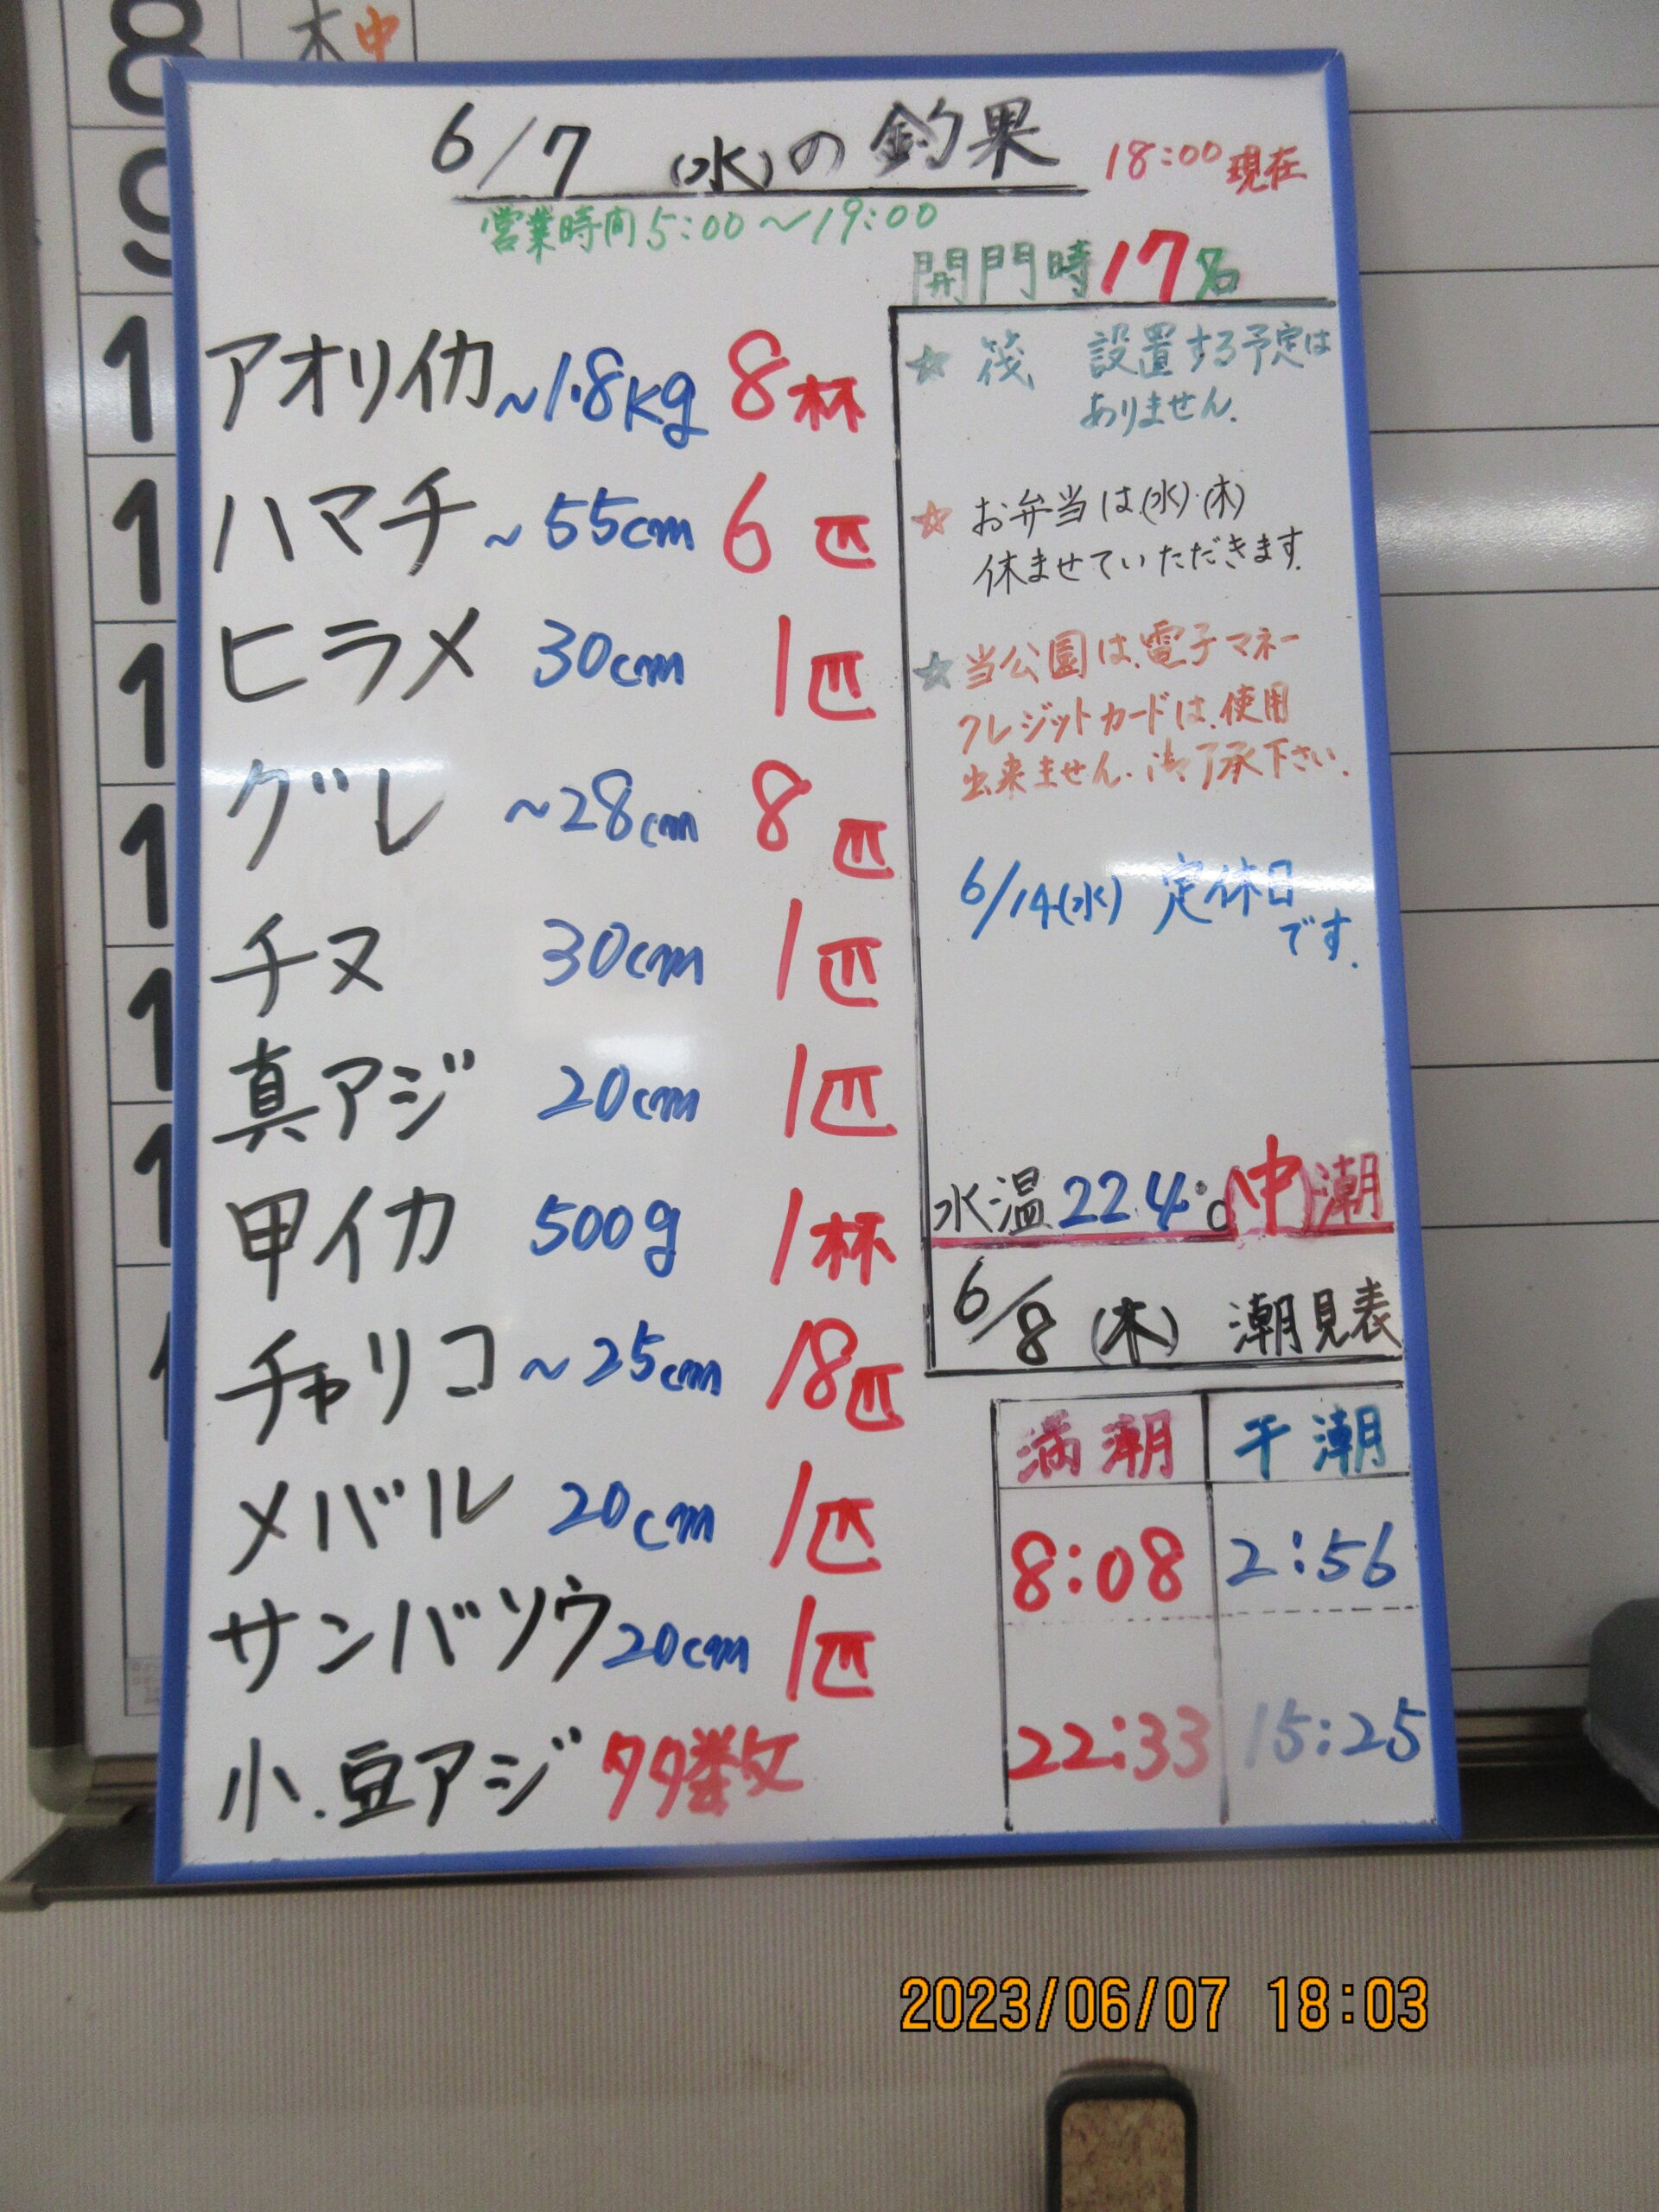 8 木 中
9
1
1
1
1
1
1
6/7 (水)の釣果 18:00現在
営業時間5:00～19:00
開門時17名
アオリイカ ~1.8kg 8杯
ハマチ ~55cm 6匹
ヒラメ 30cm 1匹
グレ ~28cm 8匹
チヌ 30cm 1匹
真アジ 20cm 1匹
甲イカ 500g 1杯
チャリコ ~25cm 18匹
メバル 20cm 1匹
サンバソウ 20cm 1匹
小.豆アジ 多数
☆ 筏 設置する予定は
ありません.
☆ お弁当は(水)・(木)
休ませていただきます.
☆ 当公園は、電子マネー
クレジットカードは、使用
出来ません.御了承下さい.
6/14(水) 定休日
です.
水温 22.4℃ (中)潮
6/8 (木) 潮見表
満潮 干潮
8:08 2:56
22:33 15:25
2023/06/07 18:03